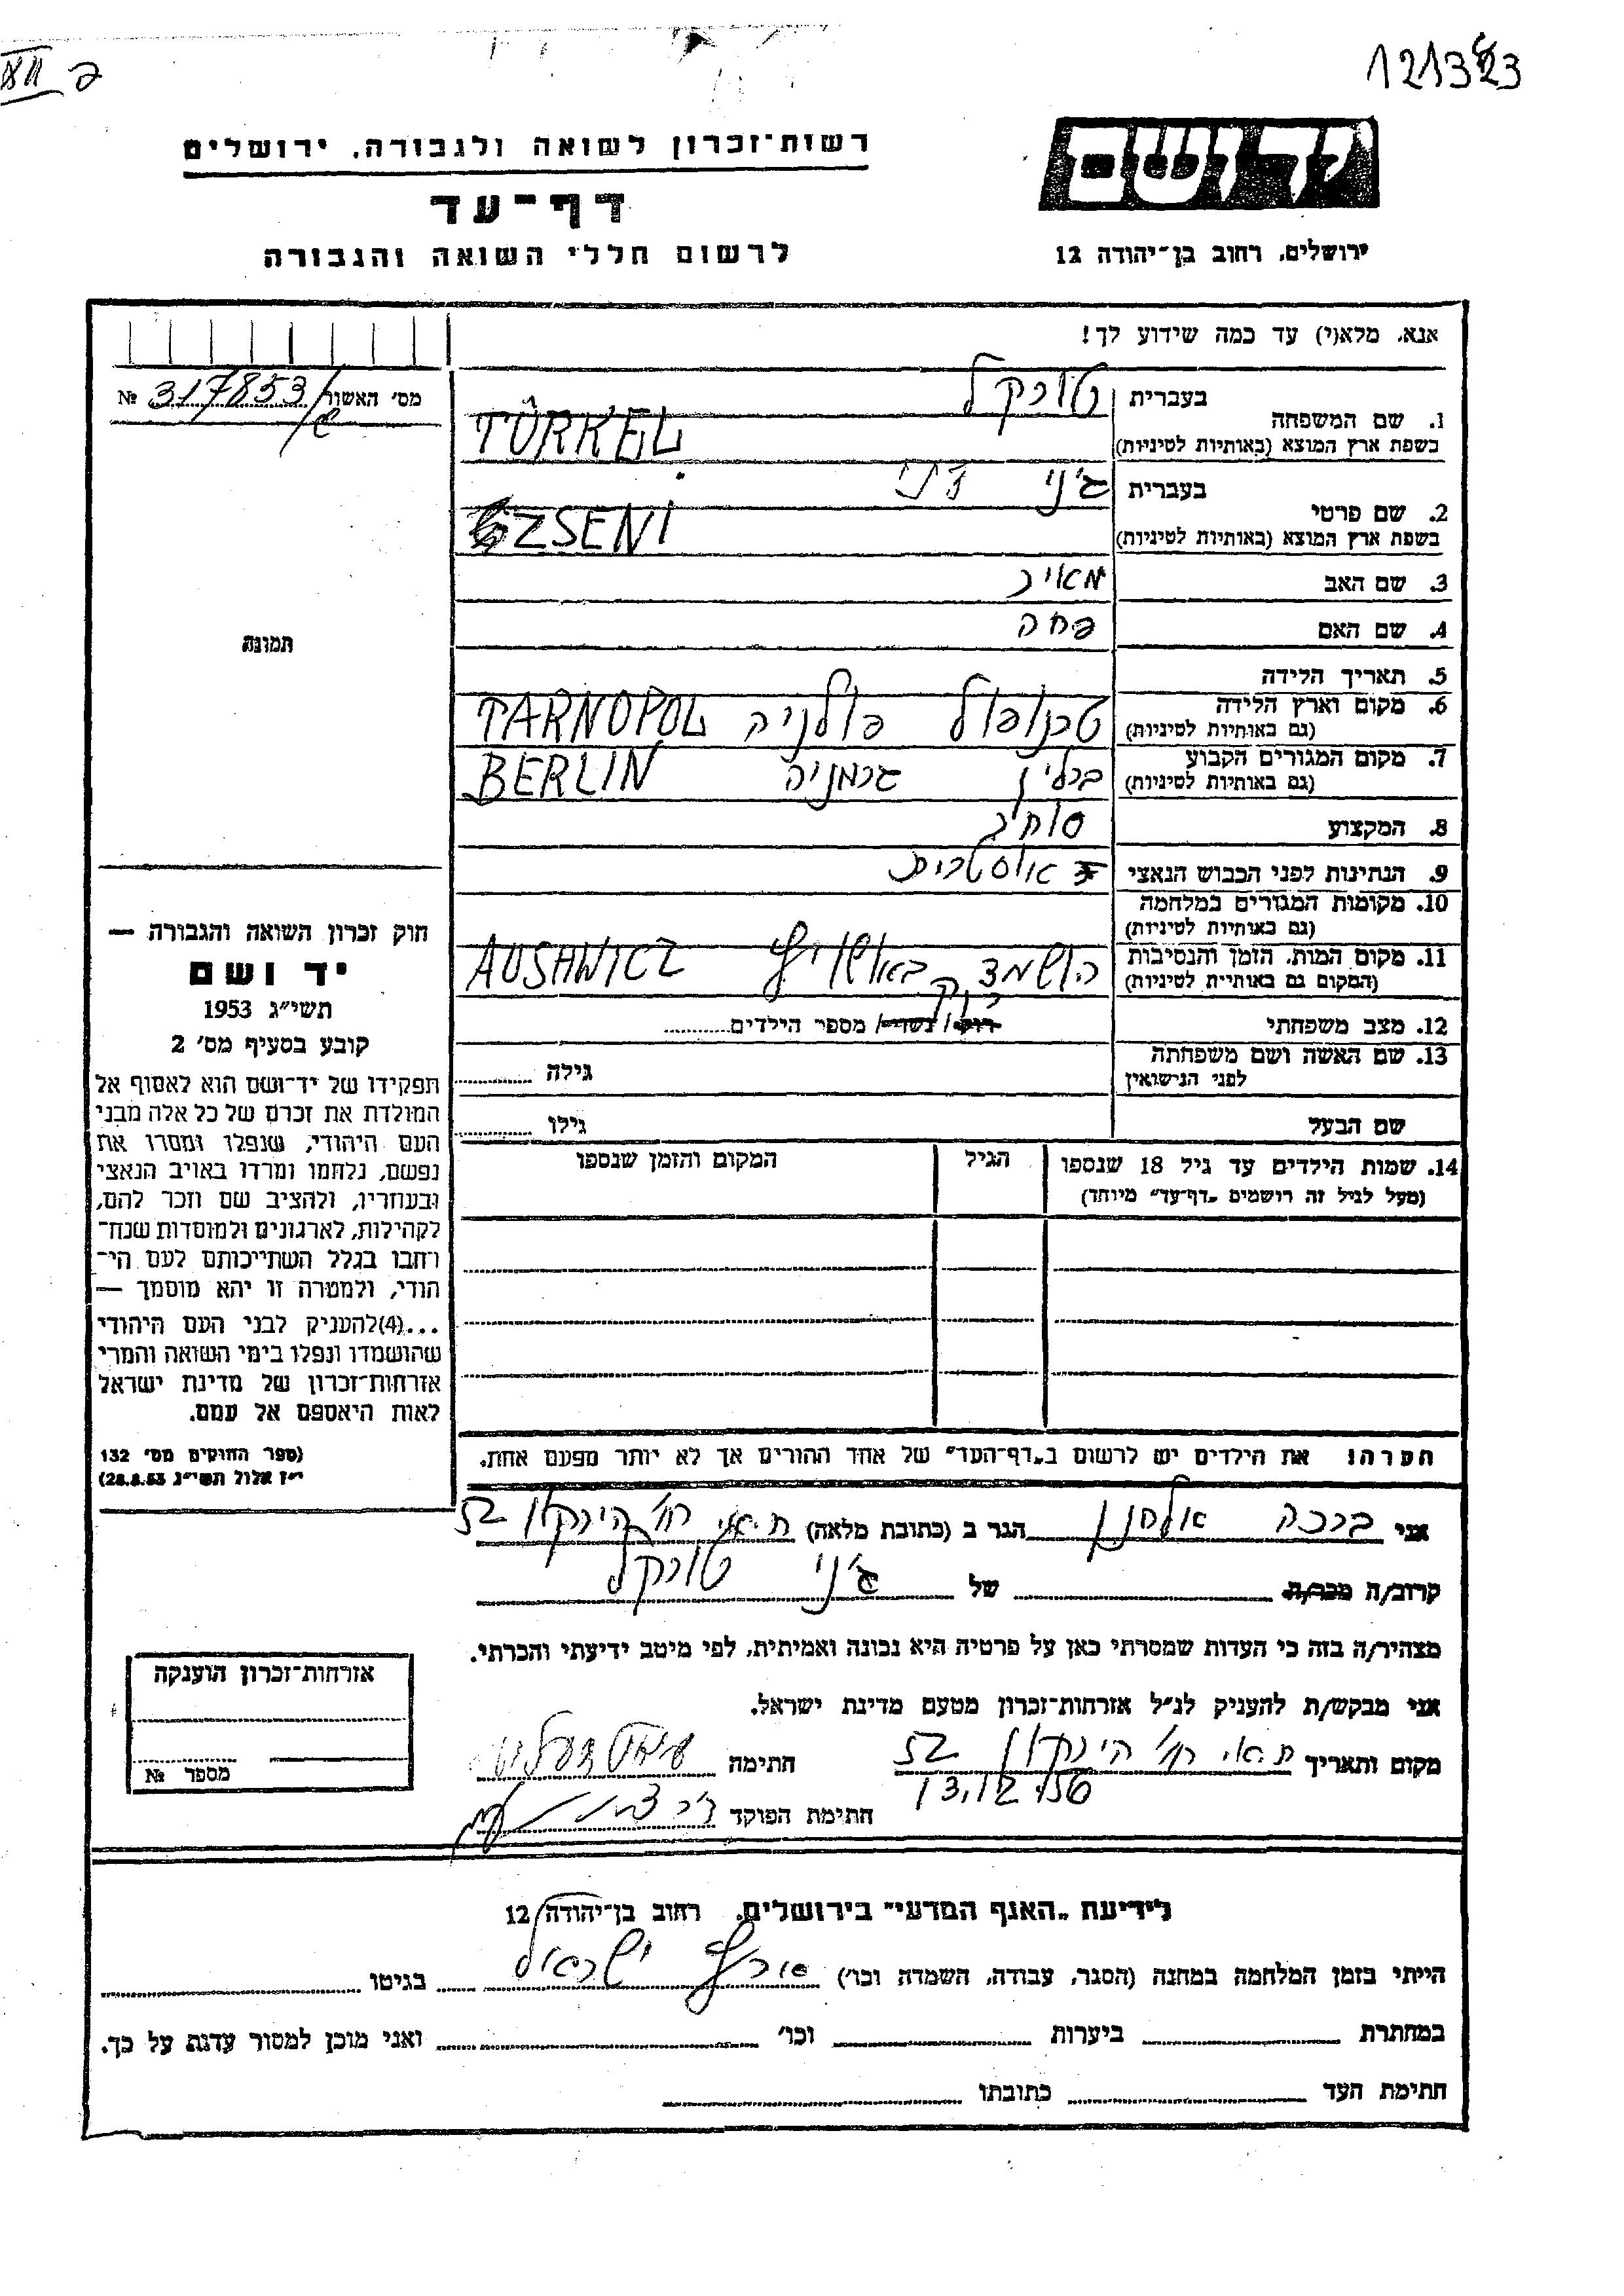 121323
רשות־זכרון לשואה ולגבורה, ירושלים
יד ושם
דף־עד
לרשום חללי השואה והגבורה
ירושלים, רחוב בן־יהודה 12
אנא, מלא(י) עד כמה שידוע לך!
מס' האשור 317853 №
1. שם המשפחה
בעברית טורקל
בשפת ארץ המוצא (באותיות לטיניות) TÜRKEL
2. שם פרטי
בעברית ג'ני
בשפת ארץ המוצא (באותיות לטיניות) ZSENI
3. שם האב מאיר
4. שם האם
5. תאריך הלידה
6. מקום וארץ הלידה טרנופול פולניה TARNOPOL
(גם באותיות לטיניות)
7. מקום המגורים הקבוע ברלין גרמניה BERLIN
(גם באותיות לטיניות)
8. המקצוע סוחר
9. הנתינות לפני הכבוש הנאצי אוסטרית
10. מקומות המגורים במלחמה
(גם באותיות לטיניות)
11. מקום המות, הזמן והנסיבות הושמד באושויץ AUSHWICZ
(המקום גם באותיית לטיניות)
12. מצב משפחתי רווק / נשוי / מספר הילדים
13. שם האשה ושם משפחתה גילה
לפני הנישואין
שם הבעל גילו
14. שמות הילדים עד גיל 18 שנספו הגיל המקום והזמן שנספו
(מעל לגיל זה רושמים „דף־עד" מיוחד)
הערה: את הילדים יש לרשום ב„דף־העד" של אחד ההורים אך לא יותר מפעם אחת.
תמונה
חוק זכרון השואה והגבורה —
יד ושם
תשי"ג 1953
קובע בסעיף מס' 2
תפקידו של יד־ושם הוא לאסוף אל
המולדת את זכרם של כל אלה מבני
העם היהודי, שנפלו ומסרו את
נפשם, נלחמו ומרדו באויב הנאצי
ובעוזריו, ולהציב שם וזכר להם,
לקהילות, לארגונים ולמוסדות שנח־
רבו בגלל השתייכותם לעם הי־
הודי, ולמטרה זו יהא מוסמך —
...(4)להעניק לבני העם היהודי
שהושמדו ונפלו בימי השואה והמרי
אזרחות־זכרון של מדינת ישראל
לאות היאספם אל עמם.
(ספר החוקים מס' 132
י"ז אלול תשי"ג 28.8.53)
אני ברכה אלחנן הגר ב (כתובת מלאה) ת"א רח' הירקון 52
קרוב/ה מכר/ה של ג'ני טורקל
מצהיר/ה בזה כי העדות שמסרתי כאן על פרטיה היא נכונה ואמיתית, לפי מיטב ידיעתי והכרתי.
אני מבקש/ת להעניק לנ"ל אזרחות־זכרון מטעם מדינת ישראל.
מקום ותאריך ת"א רח' הירקון 52 חתימה
13.12.56
חתימת הפוקד
אזרחות־זכרון הוענקה
מספר №
לידיעת „האגף המדעי" בירושלים, רחוב בן־יהודה 12
הייתי בזמן המלחמה במחנה (הסגר, עבודה, השמדה וכו') ישראל בגיטו
במחתרת ביערות וכו' ואני מוכן למסור עדות על כך.
חתימת העד כתובתו